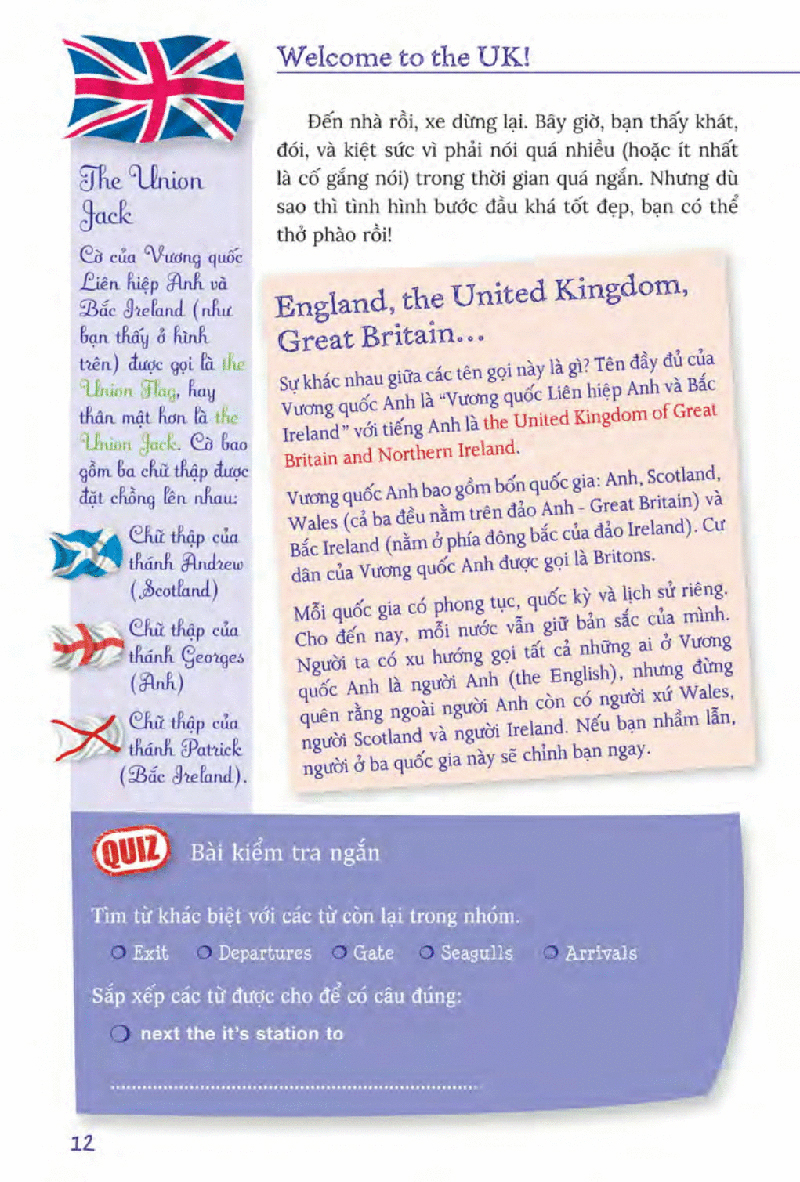 Welcome to the UK!
Đến nhà rồi, xe dừng lại. Bây giờ, bạn thấy khát,
đói, và kiệt sức vì phải nói quá nhiều (hoặc ít nhất
là cố gắng nói) trong thời gian quá ngắn. Nhưng dù
sao thì tình hình bước đầu khá tốt đẹp, bạn có thể
thở phào rồi!
The Union
Jack
Cờ của Vương quốc
Liên hiệp Anh và
Bắc Ireland (như
bạn thấy ở hình
trên) được gọi là the
Union Flag, hay
thân mật hơn là the
Union Jack. Cờ bao
gồm ba chữ thập được
đặt chồng lên nhau:
Chữ thập của
thánh Andrew
(Scotland)
Chữ thập của
thánh Georges
(Anh)
Chữ thập của
thánh Patrick
(Bắc Ireland).
England, the United Kingdom,
Great Britain...
Sự khác nhau giữa các tên gọi này là gì? Tên đầy đủ của
Vương quốc Anh là “Vương quốc Liên hiệp Anh và Bắc
Ireland” với tiếng Anh là the United Kingdom of Great
Britain and Northern Ireland.
Vương quốc Anh bao gồm bốn quốc gia: Anh, Scotland,
Wales (cả ba đều nằm trên đảo Anh - Great Britain) và
Bắc Ireland (nằm ở phía đông bắc của đảo Ireland). Cư
dân của Vương quốc Anh được gọi là Britons.
Mỗi quốc gia có phong tục, quốc kỳ và lịch sử riêng.
Cho đến nay, mỗi nước vẫn giữ bản sắc của mình.
Người ta có xu hướng gọi tất cả những ai ở Vương
quốc Anh là người Anh (the English), nhưng đừng
quên rằng ngoài người Anh còn có người xứ Wales,
người Scotland và người Ireland. Nếu bạn nhầm lẫn,
người ở ba quốc gia này sẽ chỉnh bạn ngay.
QUIZ Bài kiểm tra ngắn
Tìm từ khác biệt với các từ còn lại trong nhóm.
Exit Departures Gate Seagulls Arrivals
Sắp xếp các từ được cho để có câu đúng:
next the it's station to
12